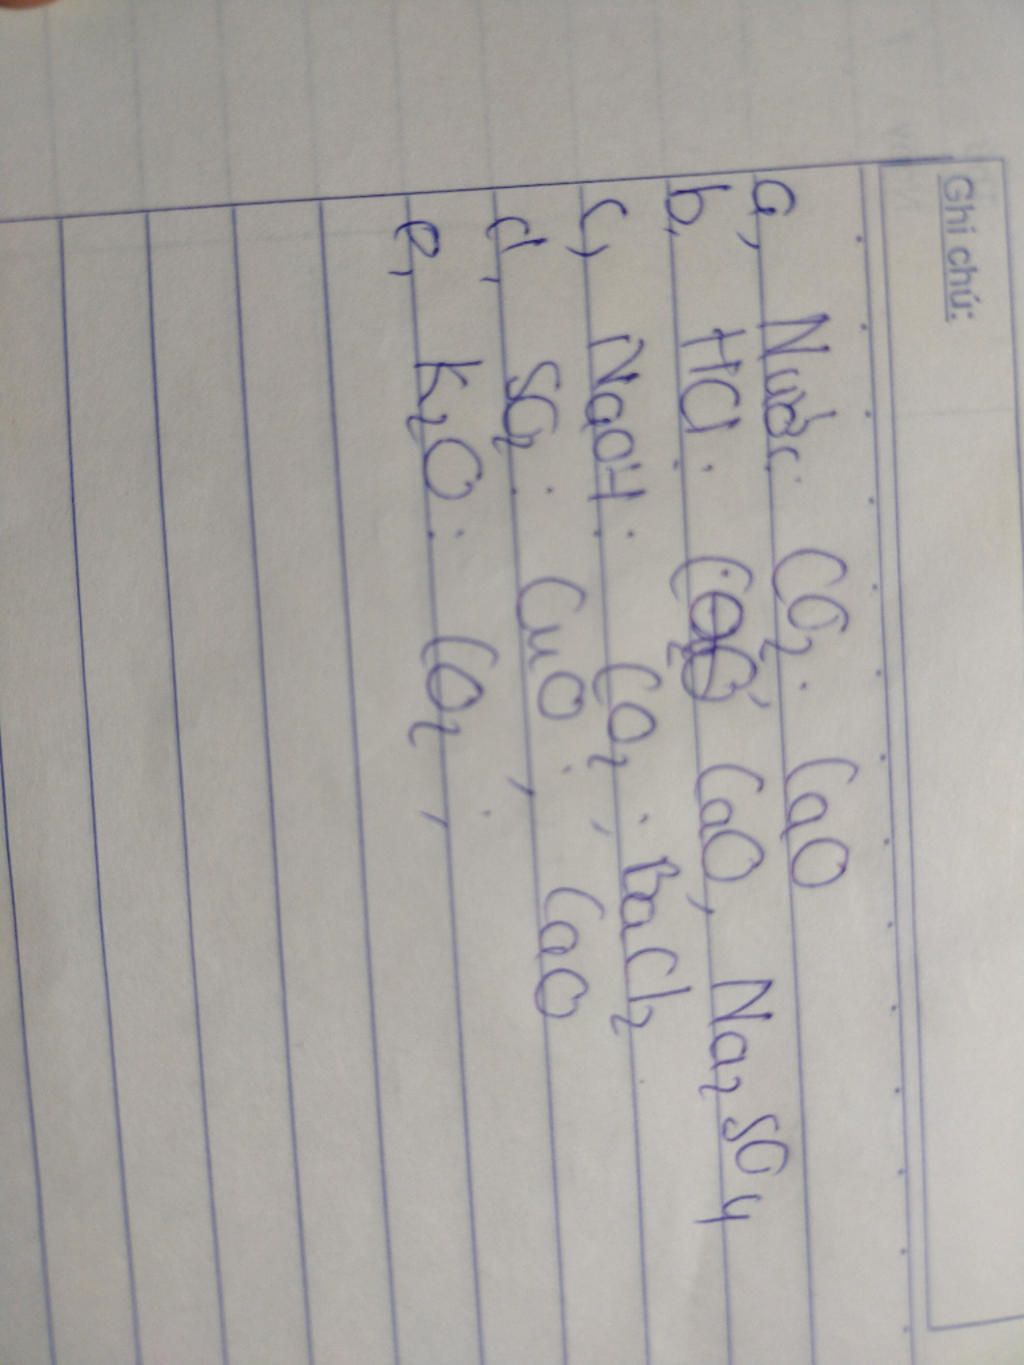 Ghi chú:
a, Nước: CO2. CaO
b, HCl: CaO, Na2SO4
c, NaOH: CO2; BaCl2
d, SO2: CuO; CaO
e, K2O: CO2;